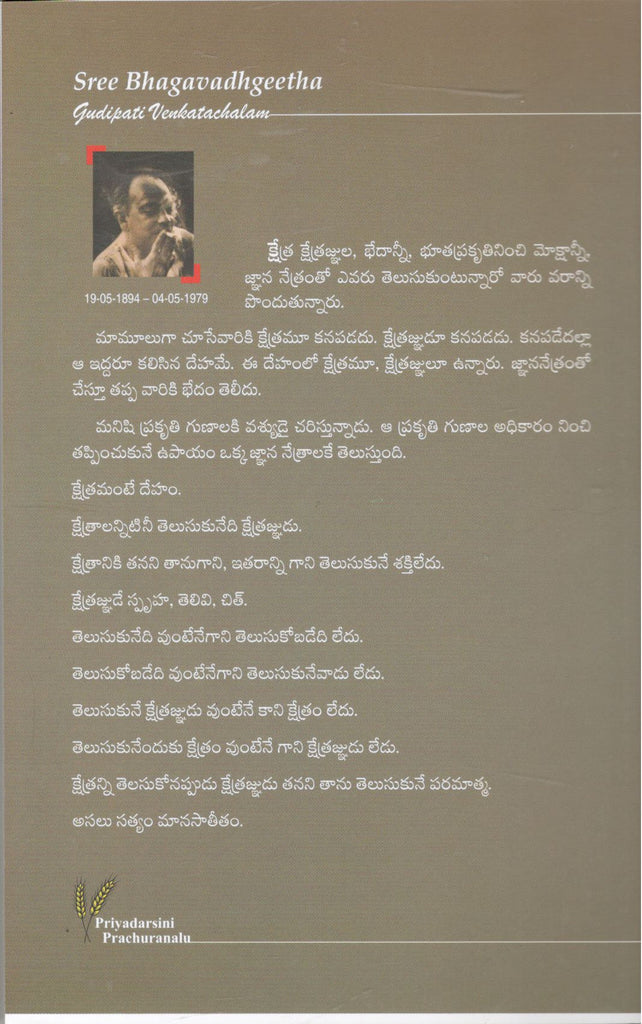 Sree Bhagavadhgeetha
Gudipati Venkatachalam
19-05-1894 – 04-05-1979
క్షేత్ర క్షేత్రజ్ఞుల, భేదాన్నీ, భూతప్రకృతినించి మోక్షాన్నీ,
జ్ఞాన నేత్రంతో ఎవరు తెలుసుకుంటున్నారో వారు వరాన్ని
పొందుతున్నారు.
మామూలుగా చూసేవారికి క్షేత్రమూ కనపడదు. క్షేత్రజ్ఞుడూ కనపడడు. కనపడేదల్లా
ఆ ఇద్దరూ కలిసిన దేహమే. ఈ దేహంలో క్షేత్రమూ, క్షేత్రజ్ఞులూ ఉన్నారు. జ్ఞాననేత్రంతో
చేస్తూ తప్ప వారికి భేదం తెలీదు.
మనిషి ప్రకృతి గుణాలకి వశ్యుడై చరిస్తున్నాడు. ఆ ప్రకృతి గుణాల అధికారం నించి
తప్పించుకునే ఉపాయం ఒక్క జ్ఞాన నేత్రాలకే తెలుస్తుంది.
క్షేత్రమంటే దేహం.
క్షేత్రాలన్నిటినీ తెలుసుకునేది క్షేత్రజ్ఞుడు.
క్షేత్రానికి తనని తానుగాని, ఇతరాన్ని గాని తెలుసుకునే శక్తిలేదు.
క్షేత్రజ్ఞుడే స్పృహ, తెలివి, చిత్.
తెలుసుకునేది వుంటేనేగాని తెలుసుకోబడేది లేదు.
తెలుసుకోబడేది వుంటేనేగాని తెలుసుకునేవాడు లేడు.
తెలుసుకునే క్షేత్రజ్ఞుడు వుంటేనే కాని క్షేత్రం లేదు.
తెలుసుకునేందుకు క్షేత్రం వుంటేనే గాని క్షేత్రజ్ఞుడు లేడు.
క్షేత్రన్ని తెలసుకోనప్పుడు క్షేత్రజ్ఞుడు తనని తాను తెలుసుకునే పరమాత్మ.
అసలు సత్యం మానసాతీతం.
Priyadarsini
Prachuranalu